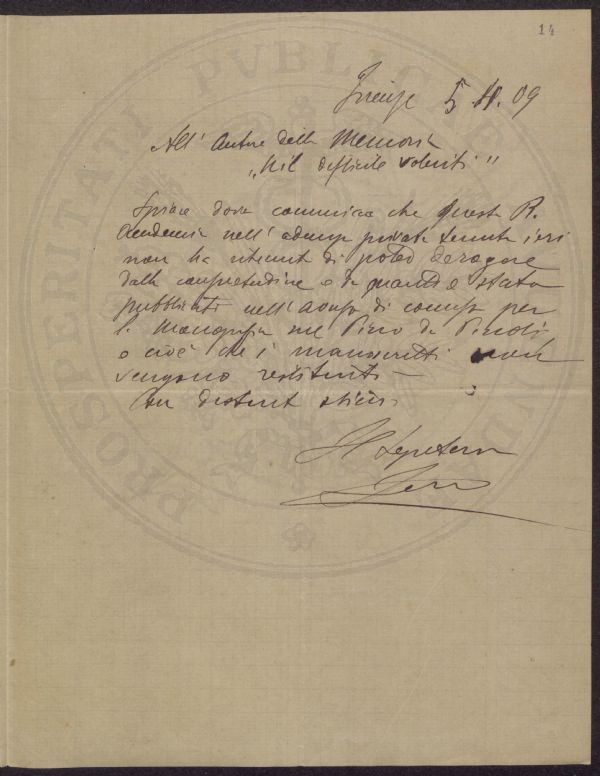 14
Firenze 5.11.09
All' Autore della Memoria
"Nil difficile volenti"
Spiace dover comunicare che questa R.
Accademia nell' adunza privata tenuta ieri
non ha ritenuto di poter derogare
dalla consuetudine e da quanto è stato
pubblicato nell' avviso di concorso per
la Monografia sul Pino da Pinoli
e cioè che i manoscritti non
vengono restituiti —
Con distint stima
Il Segretario
PROSPERITATI PVBLICAE